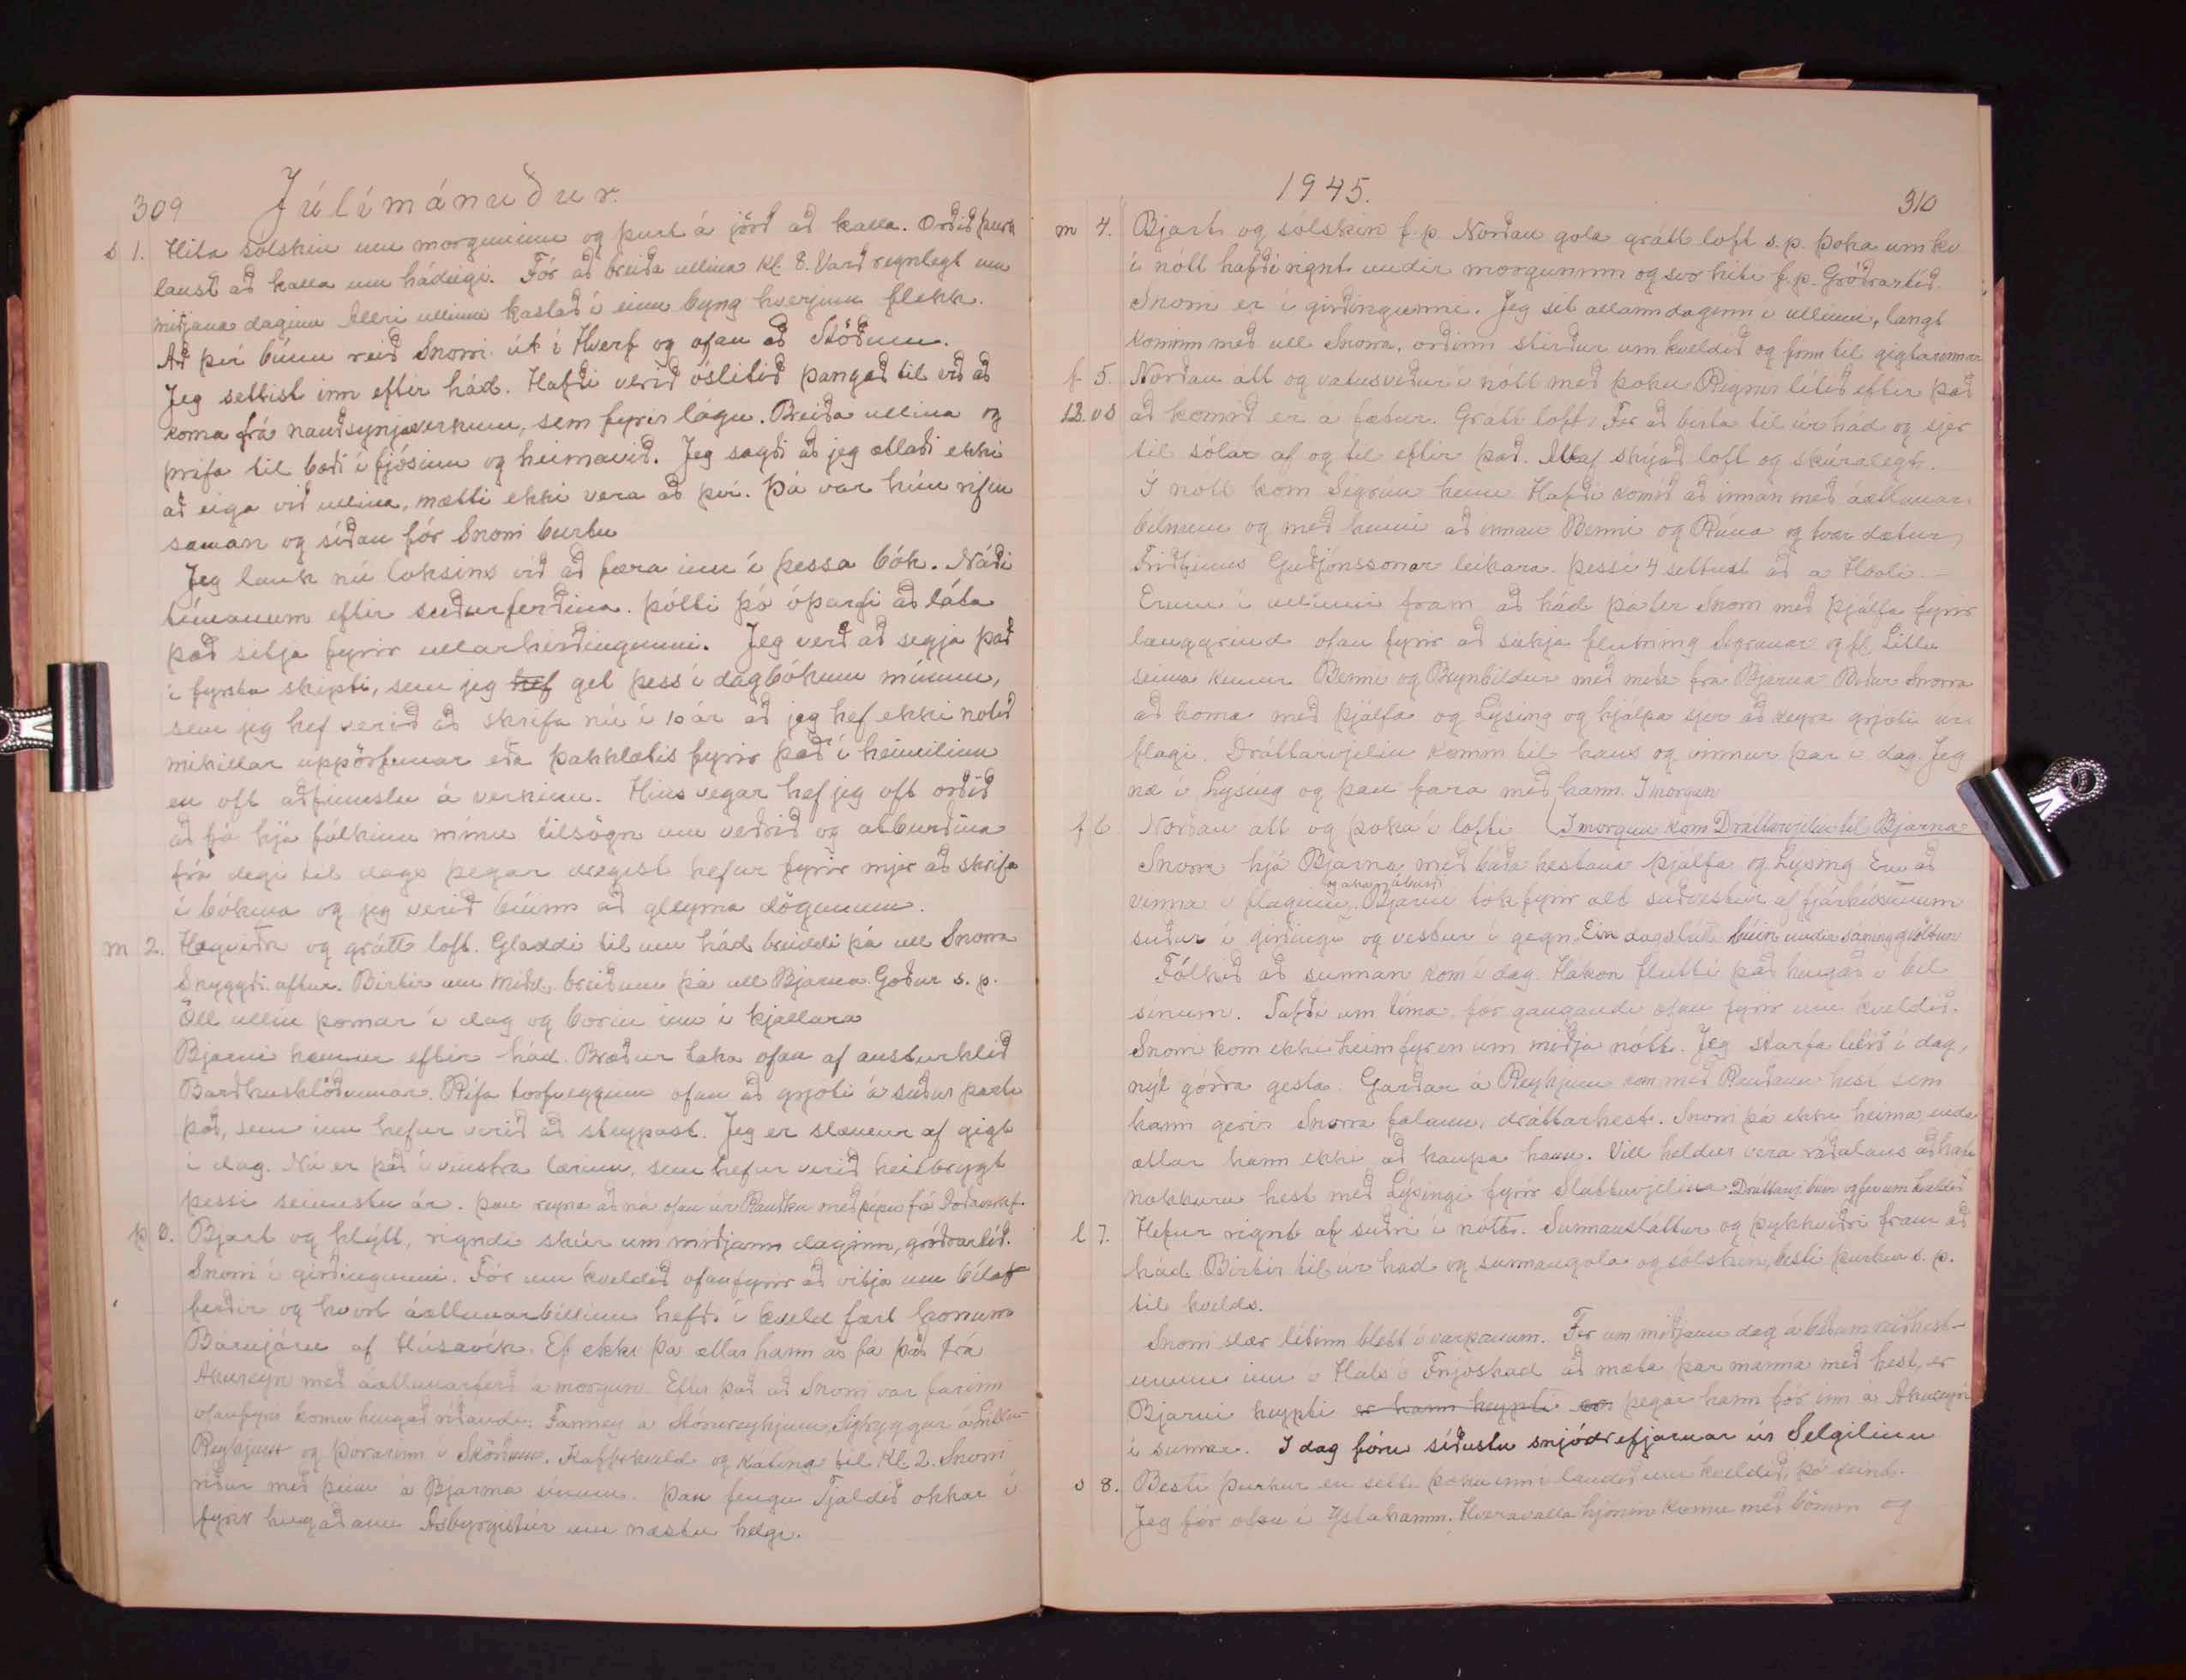 309 Júlímánuður.
s 1. Hita sólskin um morguninn og þurt á jörð að kalla. Orðið þurk
laust að kalla um hádegi. Fór að breiða ullina kl. 8. Varð regnlegt um
miðjann daginn Allri ullinni kastað í einn byng hverjum flekk.
Að því búnu reið Snorri út í Hverf og ofan að Stöðum.
Jeg settist inn eftir hád. Hafði verið óslitið þangað til við að
koma frá nauðsynjaverkum, sem fyrir lágu. Breiða ullina og
þrífa til bæði í fjósinu og heimavið. Jeg sagði að jeg ætlaði ekki
að eiga við ullina, mætti ekki vera að því. Þá var hún rifin
saman og síðan fór Snorri burtu
Jeg lauk nú loksins við að færa inn í þessa bók. Náði
tímanum eftir suðurferðina. Þótti þó óþarfi að láta
það sitja fyrir ullarhirðingunni. Jeg verð að segja það
í fyrsta skipti, sem jeg hef get þess í dagbókum mínum,
sem jeg hef verið að skrifa nú í 10 ár að jeg hef ekki notið
mikillar uppörfunar eða þakklætis fyrir það í heimilinu
en oft aðfinnslu á verkinu. Hins vegar hef jeg oft orðið
að fá hjá fólkinu mínu tilsögn um veðrið og atburðina
frá degi til dags þegar dregist hefur fyrir mjer að skrifa
í bókina og jeg verið búinn að gleyma dögunum.
m 2. Hægviðri og grátt loft. Gladdi til um hád breiddi þá ull Snorra
Skyggði aftur. Birtir um midd. breiðum þá ull Bjarna. Góður s. p.
Öll ullin þornar í dag og borin inn í kjallara
Bjarni kemur eftir hád. Bræður taka ofan af austurhlið
Barðhushlöðunnar. Rífa torfvegginn ofan að grjóti á suður parti
það, sem inn hefur verið að steypast. Jeg er slæmur af gigt
í dag. Nú er það í vinstra lærinu, sem hefur verið heilbrygt
þessi seinustu ár. Þau reyna að ná ofan úr Rauðku með pípu
þ 3. Bjart og hlýtt, rigndi skúr um miðjann daginn, gróðrartíð.
Snorri í girðingunni. Fór um kveldið ofanfyrir að vitja um bílaf
ferðir og hvort áætlunarbíllinn hefði í kveld fært honum
Bárujárn af Húsavík. Ef ekki þá ætlar hann að fá það frá
Akureyri með áætlunarferð á morgun. Eftir það að Snorri var farinn
ofanfyrir komu hingað ríðandi: Fanney á Stórureykjum, Sigtryggur á Litlu-
Reykjum og Þórarinn í Skörðum. Kaffikveld og kæting til Kl 2. Snorri
ríður með þeim á Bjarma sínum. Þau fengu Tjaldið okkar í
fyrir hugaðann Ásbyrgistúr um næstu helgi.
1945. 310
m 4. Bjart og sólskin f. p. Norðan gola grátt loft s. p. þoka um kv
í nótt hafði rignt undir morguninn og svo hiti f.p. Gróðrartíð.
Snorri er í girðingunni. Jeg sit allann daginn í ullinni, langt
kominn með ull Snorra, orðinn stirður um kveldið og finn til gigtarinnar
f 5. Norðan átt og vatnsveður í nótt með þoku. Rignir lítið eftir það
12. vs að komið er á fætur. Grátt loft. Fer að birta til úr hád og sjer
til sólar af og til eftir það. Altaf skýjað loft og skúralegt.
Í nótt kom Sigrún heim. Hafði komið að innan með áætlunar
bílnum og með henni að innan Benni og Rúna og tvær dætur
Friðfinns Guðjónssonar leikara. Þessi 4 settust að á Hóli.
Erum í ullinni fram að hád þá fer Snorri með Þjálfa fyrir
langgrind ofan fyrir að sækja flutning Sigrúnar og fl. Litlu
seinna kemur Benni og Brynhildur með miða frá Bjarna. Biður Snorra
að koma með Þjálfa og Lýsing og hjálpa sjer að keyra grjóti úr
flagi. Dráttarvjelin kemur til hans og vinnur þar í dag. Jeg
næ í Lýsing og þau fara með hann. Í morgun
f 6. Norðan átt og þoka í lofti. (Í morgun kom Dráttarvjelin til Bjarna
Snorri hjá Bjarna með báða hestana Þjálfa og Lýsing Eru að
vinna í flaginu, Bjarni tók fyrir alt suðvestur af fjárhúsunum
suður í girðingu og vestur í gegn. Ein dagslát búin undir sáning
Fólkið að sunnan kom í dag. Hákon flutti það hingað í bíl
sínum. Tafði um tíma, fór gangandi ofan fyrir um kveldið.
Snorri kom ekki heim fyr en um miðja nótt. Jeg starfa lítið í dag,
nýt góðra gesta. Garðar á Reykjum kom með Rauðann hest sem
hann gerir Snorra falann, dráttarhest. Snorri þá ekki heima enda
ætlar hann ekki að kaupa hann. Vill heldur vera ráðalaus að hafa
nokkurn hest með Lýsingi fyrir Sláttuvjelina. Dráttarvj. búin og fer um kveldið
l 7. Hefur rignt af suðri í nótt. Sunnansláttur og þykkviðri fram að
hád. Birtir til úr hád og sunnangola og sólskin, besti þurkur s. p.
til kvelds.
Snorri slær lítinn blett í varpanum. Fer um miðjann dag á bátum reiðhest-
unum inn í Háls í Fnjóskad. að mæta þar manna með hest, er
Bjarni keypti er hann keypti er þegar hann fór inn á Akureyri
í sumar. Í dag fóru síðustu snjódrefjarnar úr Selgilinu
s 8. Besti þurkur en setti þoku inn í landið um kveldið, þó seint.
Jeg fór ofan í Ystahvamm. Hveravalla hjónin komu með börnin og